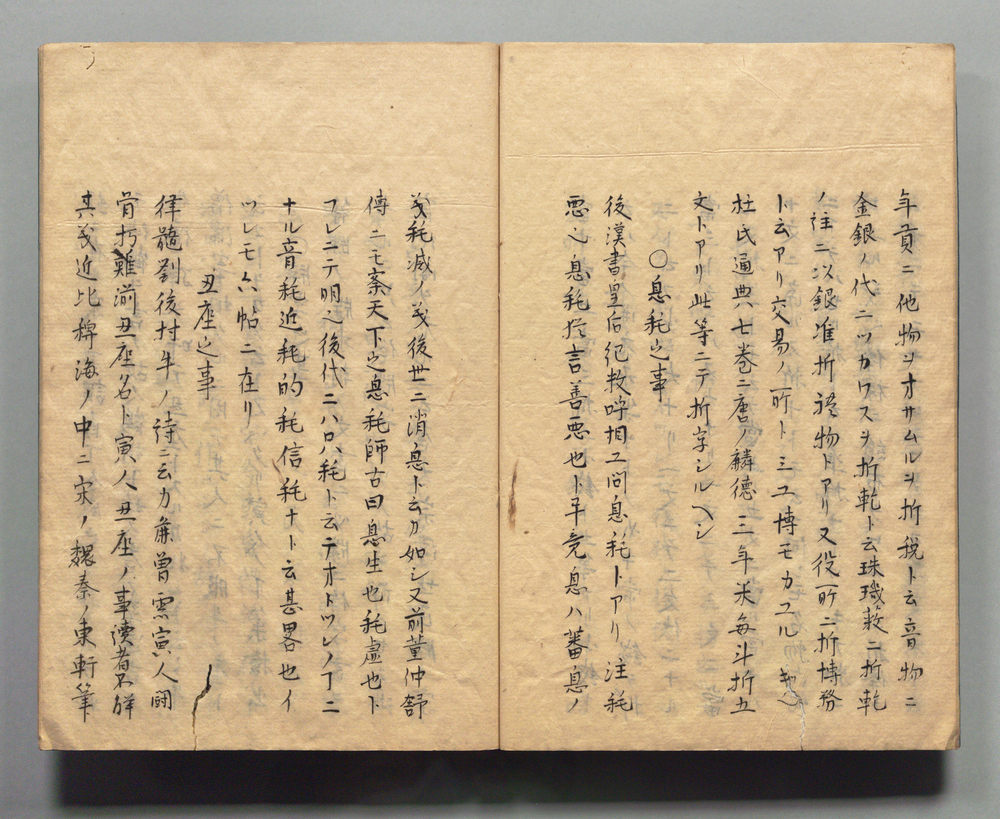 年貢ニ他物ヲオサムルヲ折税ト云音物ニ
金銀ノ代ニツカワスヲ折乾ト云珠璣薮ニ折乾
ノ注ニ以銀准折礼物トアリ又役所ニ折博務
ト云アリ交易ノ所トミユ博モカユル
杜氏通典七巻ニ唐ノ麟徳三年米毎斗折五
文トアリ此等ニテ折字シルヘシ
〇息耗之事
後漢書皇后紀数呼相工問息耗トアリ注耗
悪也息耗猶言善悪也ト畢竟息ハ蕃息ノ
義耗減ノ義後世ニ消息ト云カ如シ又前董仲舒
傳ニモ天下之息耗師古曰息生也耗虚也ト
アレニテ明也後代ニハロハ耗ト云テオトツレノ丁ニ
ナル音耗近耗的耗信耗ナト云甚畧也イ
ツレモ六帖ニ在リ
丑座之事
律髓劉後村牛ノ詩ニ云カ角曽雲寅人闘
骨朽難湔丑座名ト寅人丑座ノ事読者不解
其義近比稗海ノ中ニ宋ノ魏泰ノ東軒筆